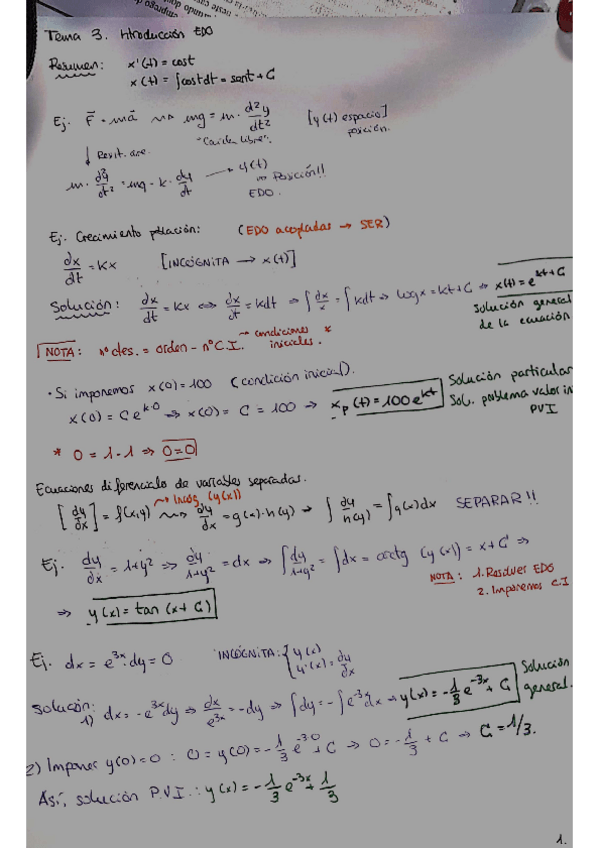 Tema 3. Introducción EDO
Resumen: x'(t) = cost
x(t) = ∫cost dt = sent + C
Ej. F⃗ = ma⃗ ⇝ mg = m · d²y/dt² [y(t) espacio] posición.
↓ Resit. aire. "Caída libre".
m · d²y/dt² = mg - k · dy/dt → y(t) Posición!!
EDO.
Ej. Crecimiento población: (EDO acopladas → SER)
dx/dt = Kx [INCÓGNITA → x(t)]
Solución: dx/dt = Kx ⇔ dx/x = kdt ⇒ ∫dx/x = ∫kdt ⇒ logx = kt + C ⇒ x(t) = e^(kt+C)
Solución general de la ecuación
NOTA: nº ctes. = orden - nº C.I. → condiciones iniciales. *
· Si imponemos x(0) = 100 (condición inicial).
x(0) = C e^(k·0) ⇒ x(0) = C = 100 ⇒ xp(t) = 100e^(kt)
Solución particular
Sol. problema valor in
PVI
* 0 = 1 - 1 ⇒ 0 = 0
Ecuaciones diferenciales de variables separadas.
→ Incóg. (y(x))
[dy/dx] = f(x,y) ⇝ dy/dx = g(x)·h(y) → ∫ dy/h(y) = ∫g(x)dx SEPARAR!!
Ej. dy/dx = 1+y² ⇒ dy/1+y² = dx ⇒ ∫dy/1+y² = ∫dx = arctg (y(x)) = x + C ⇒
NOTA: 1. Resolver EDO
2. Imponemos C.I
⇒ y(x) = tan(x + C)
Ej. dx = e^(3x) · dy = 0 INCÓGNITA: { y(x) y'(x) = dy/dx
Solución:
1) dx = -e^(3x)dy ⇒ dx/e^(3x) = -dy ⇒ ∫dy = -∫e^(-3x)dx ⇒ y(x) = -1/3 e^(-3x) + C
Solución general.
2) Imponer y(0) = 0 : 0 = y(0) = -1/3 e^(-3·0) + C ⇒ 0 = -1/3 + C ⇒ C = 1/3.
Así, solución P.V.I.: y(x) = -1/3 e^(-3x) + 1/3
1.